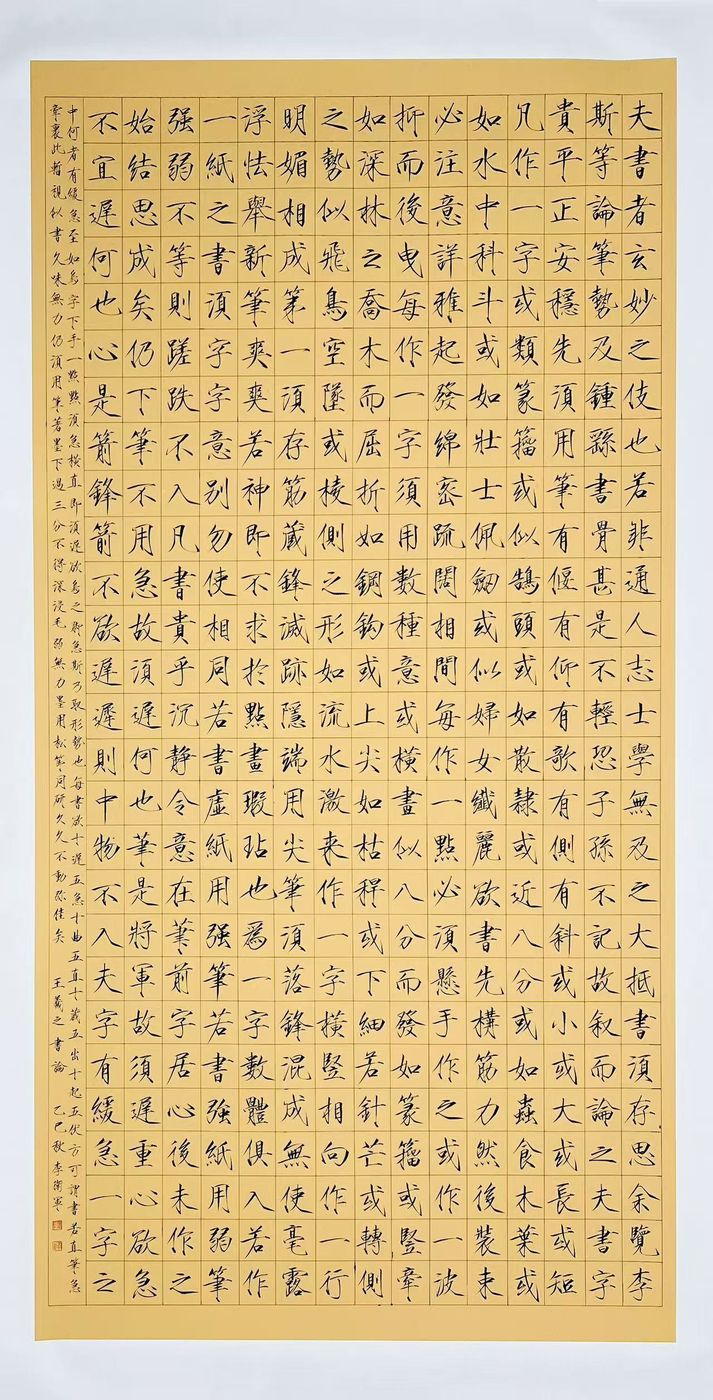 夫書者玄妙之伎也若非通人志士學無及之大抵書須存思余覽李
斯等論筆勢及鍾繇書骨甚是不輕恐子孫不記故叙而論之夫書字
貴平正安穩先須用筆有偃有仰有欹有側有斜或小或大或長或短
凡作一字或類篆籀或似鵠頭或如散隸或近八分或如蟲食木葉或
如水中科斗或如壯士佩劒或似婦女纖麗欲書先構筋力然後裝束
必注意詳雅起發綿密疏闊相間每作一點必須懸手作之或作一波
抑而後曳每作一字須用數種意或橫畫似八分而發如篆籀或豎牽
如深林之喬木而屈折如鋼鈎或上尖如枯稈或下細若針芒或轉側
之勢似飛鳥空墜或棱側之形如流水激来作一字橫豎相向作一行
明媚相成第一須存筋藏鋒滅跡隱端用尖筆須落鋒混成無使毫露
浮怯舉新筆爽爽若神即不求於點畫瑕玷也爲一字數體俱入若作
一紙之書須字字意別勿使相同若書虛紙用强筆若書强紙用弱筆
强弱不等則蹉跌不入凡書貴乎沉静令意在筆前字居心後未作之
始結思成矣仍下筆不用急故須遲何也筆是將軍故須遲重心欲急
不宜遲何也心是箭鋒箭不欲遲遲則中物不入夫字有緩急一字之
中何者有緩急至如烏字下手一點點須急橫直即須遲欲烏之脚急斯乃取形勢也每書欲十遲五急十曲五直十藏五出十起五伏方可謂書若直筆急
牽裹此暫視似書久味無力仍須用筆著墨下過三分不得深浸毛弱無力墨用松節同研久久不動弥佳矣 王羲之書論 乙巳秋 李衛軍